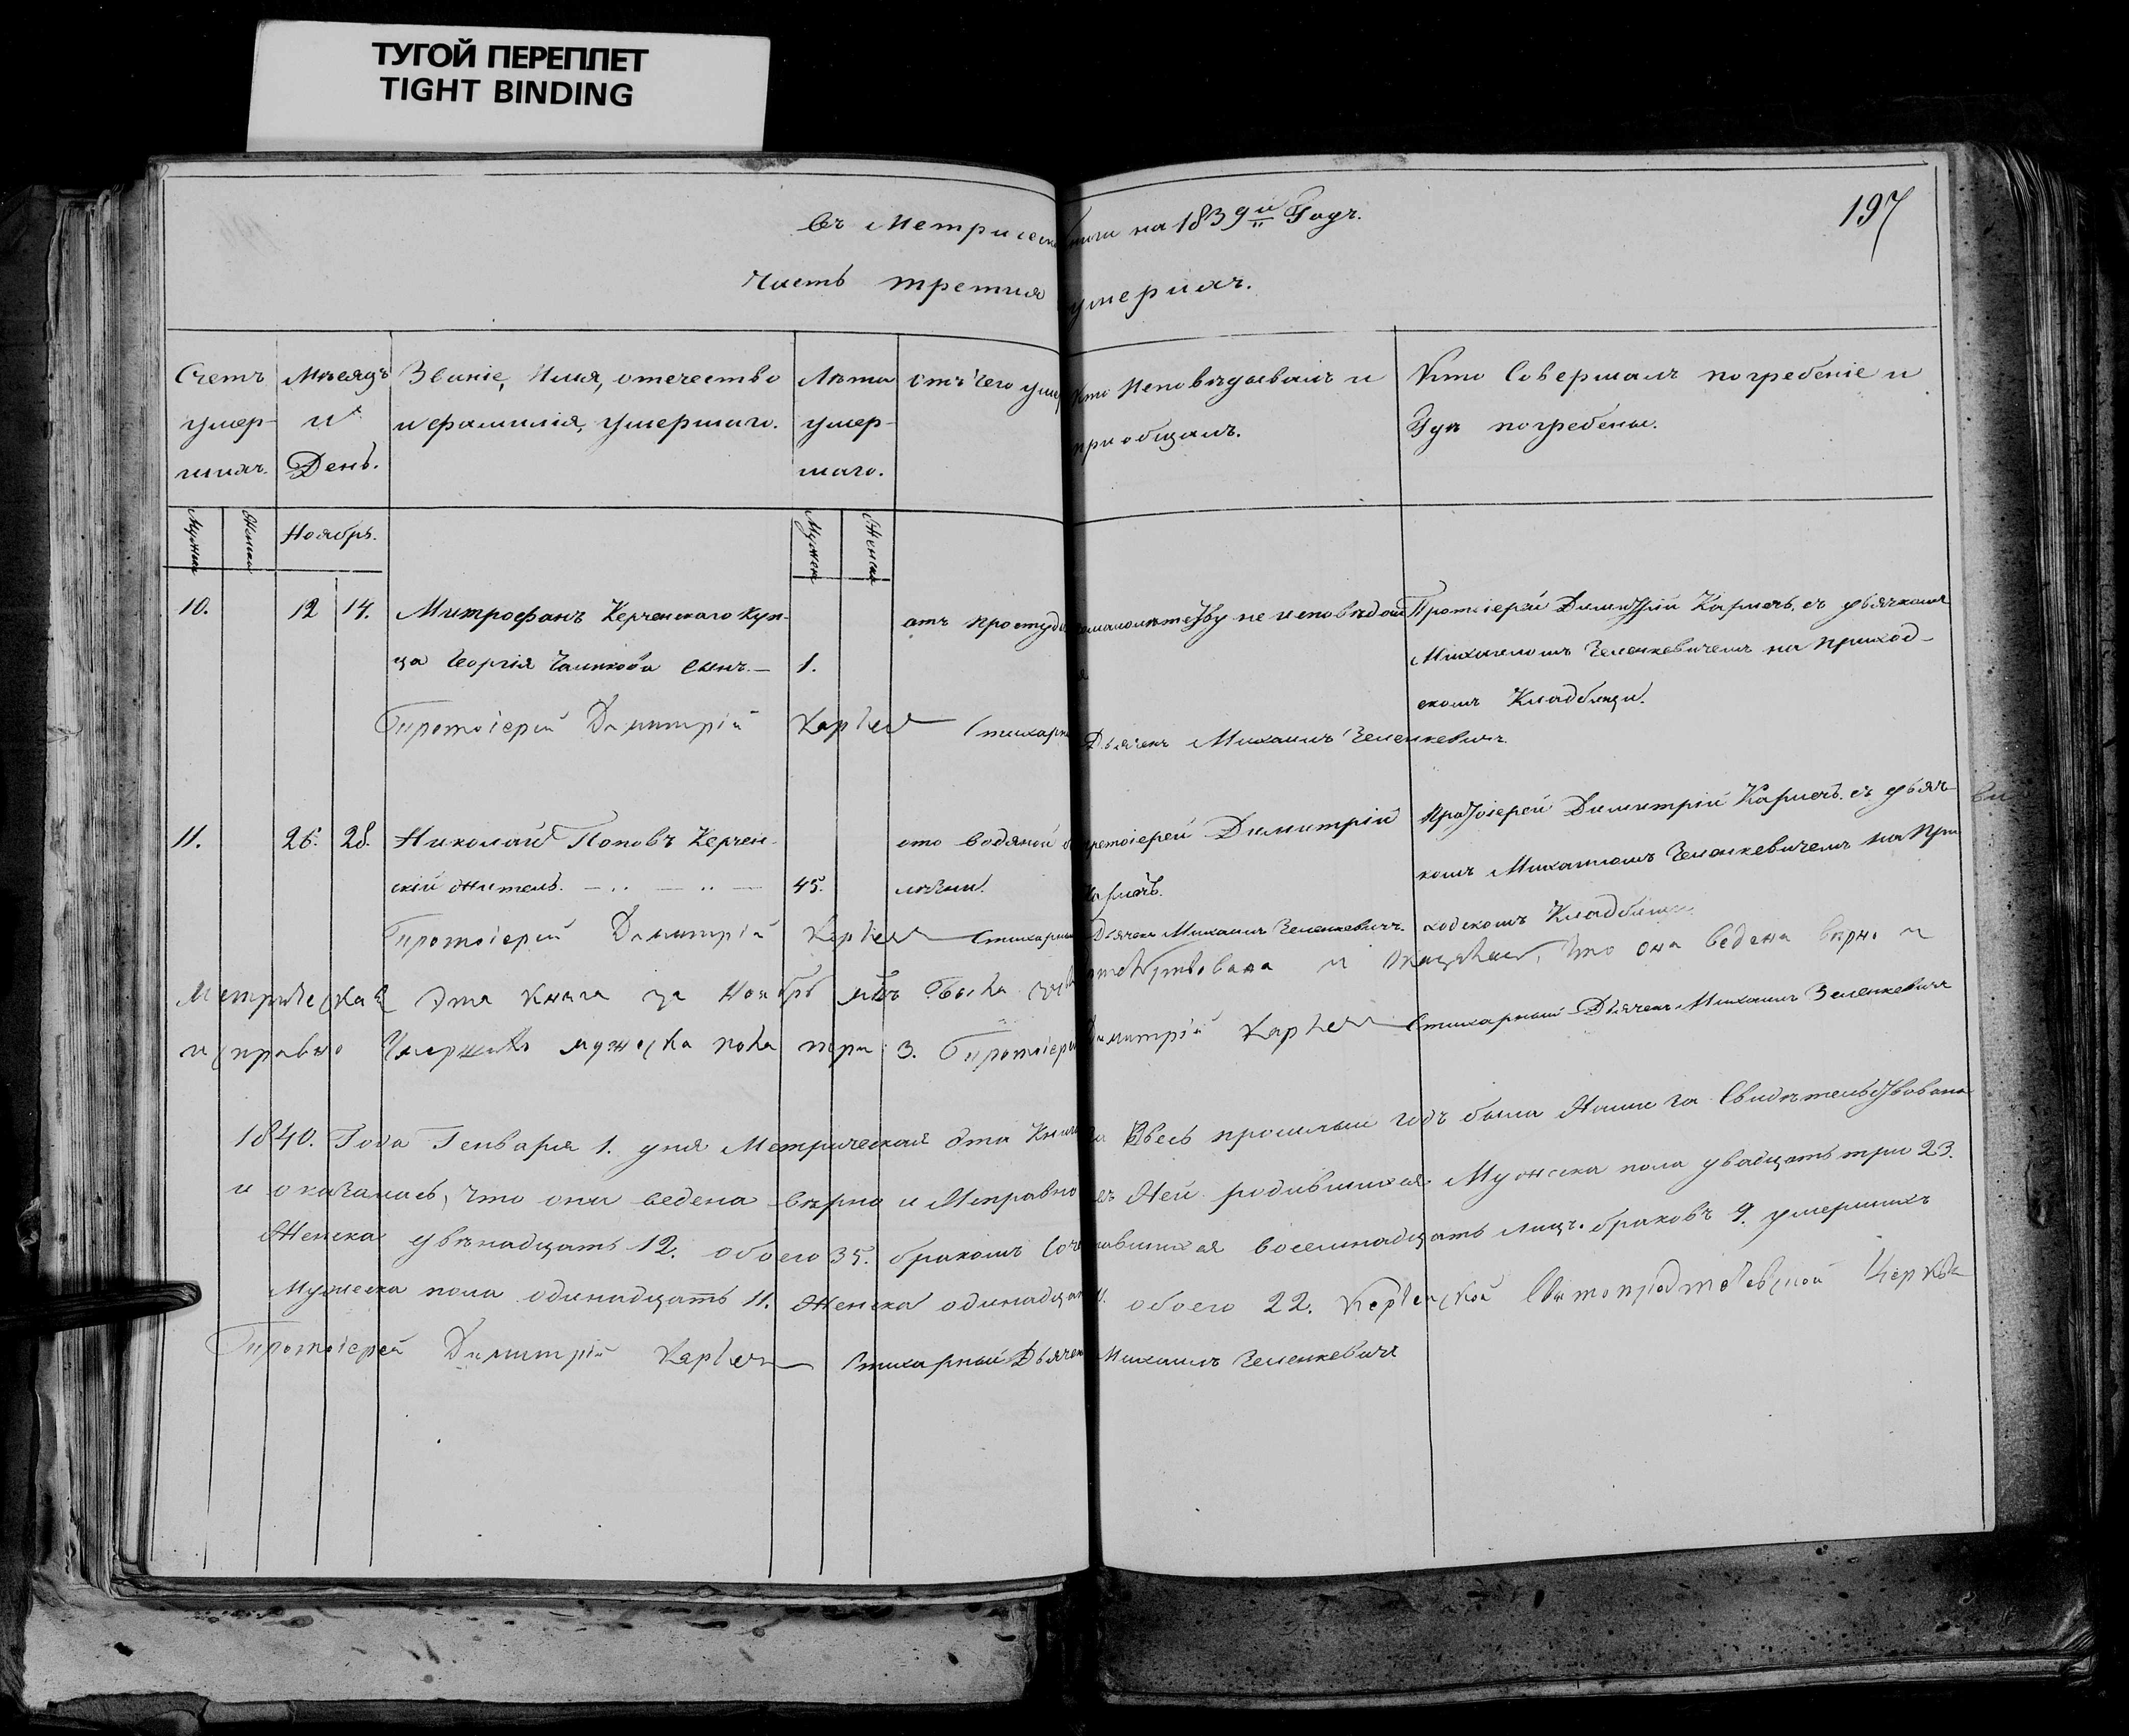 ТУГОЙ ПЕРЕПЛЕТ
TIGHT BINDING
197
въ Метрической книги на 1839й Годъ.
Часть третия умершихъ.
Счетъ умер-шихъ.
Мѣсяцъ и День.
Званіе, Имя, отечество и фамилія, умершаго.
Лѣта умер-шаго.
отъ чего умеръ
Кто Исповѣдывалъ и приобщалъ.
Кто Совершалъ погребеніе и Гдѣ погребены.
Мужска Женска Ноябрь. Мужска Женска
10. 12 14. Митрофанъ Керченскаго Куп- отъ простуды не исповѣдан Протоіерей Димитрій Карчевъ съ дьячкомъ
ца Георгія сынъ.— 1. Михаиломъ Зеленкевичемъ на приход-
скомъ Кладбищи.
Протоіерей Димитрій Дьячекъ Михаилъ Зеленкевичъ.
11. 26. 28. Николай Поповъ Керчен- ото водяной протоіерей Димитрій протоіерей Димитрій съ дьяч-
скій житель. — .. — .. — 45. комъ Михаиломъ Зеленкевичемъ на при
Протоіерей Димитрій Стихарный Дьячекъ Михаилъ Зеленкевичъ. ходскомъ Кладбищи.
Метрическая эта книга за Ноябрь была и оказалась, что она ведена вѣрно и
исправно Умершихъ мужеска пола три 3. Протоіерей Димитрій Стихарный Дьячекъ Михаилъ Зеленкевичъ
1840. Года Генваря 1. дня Метрическая эта Книга за весь прошлый годъ была Нами Свидѣтельствована
и оказалась, что она ведена вѣрно и Исправно въ Ней родившихся Мужска пола двадцать три 23.
Женска двѣнадцать 12. обоего 35. бракомъ Сочетавшихся восемнадцать лицъ. браковъ 9. умершихъ
Мужеска пола одинадцать 11. Женска одинадцать 11. обоего 22. Керченской Церкви
Протоіерей Димитрій Стихарный Дьячекъ Михаилъ Зеленкевичъ